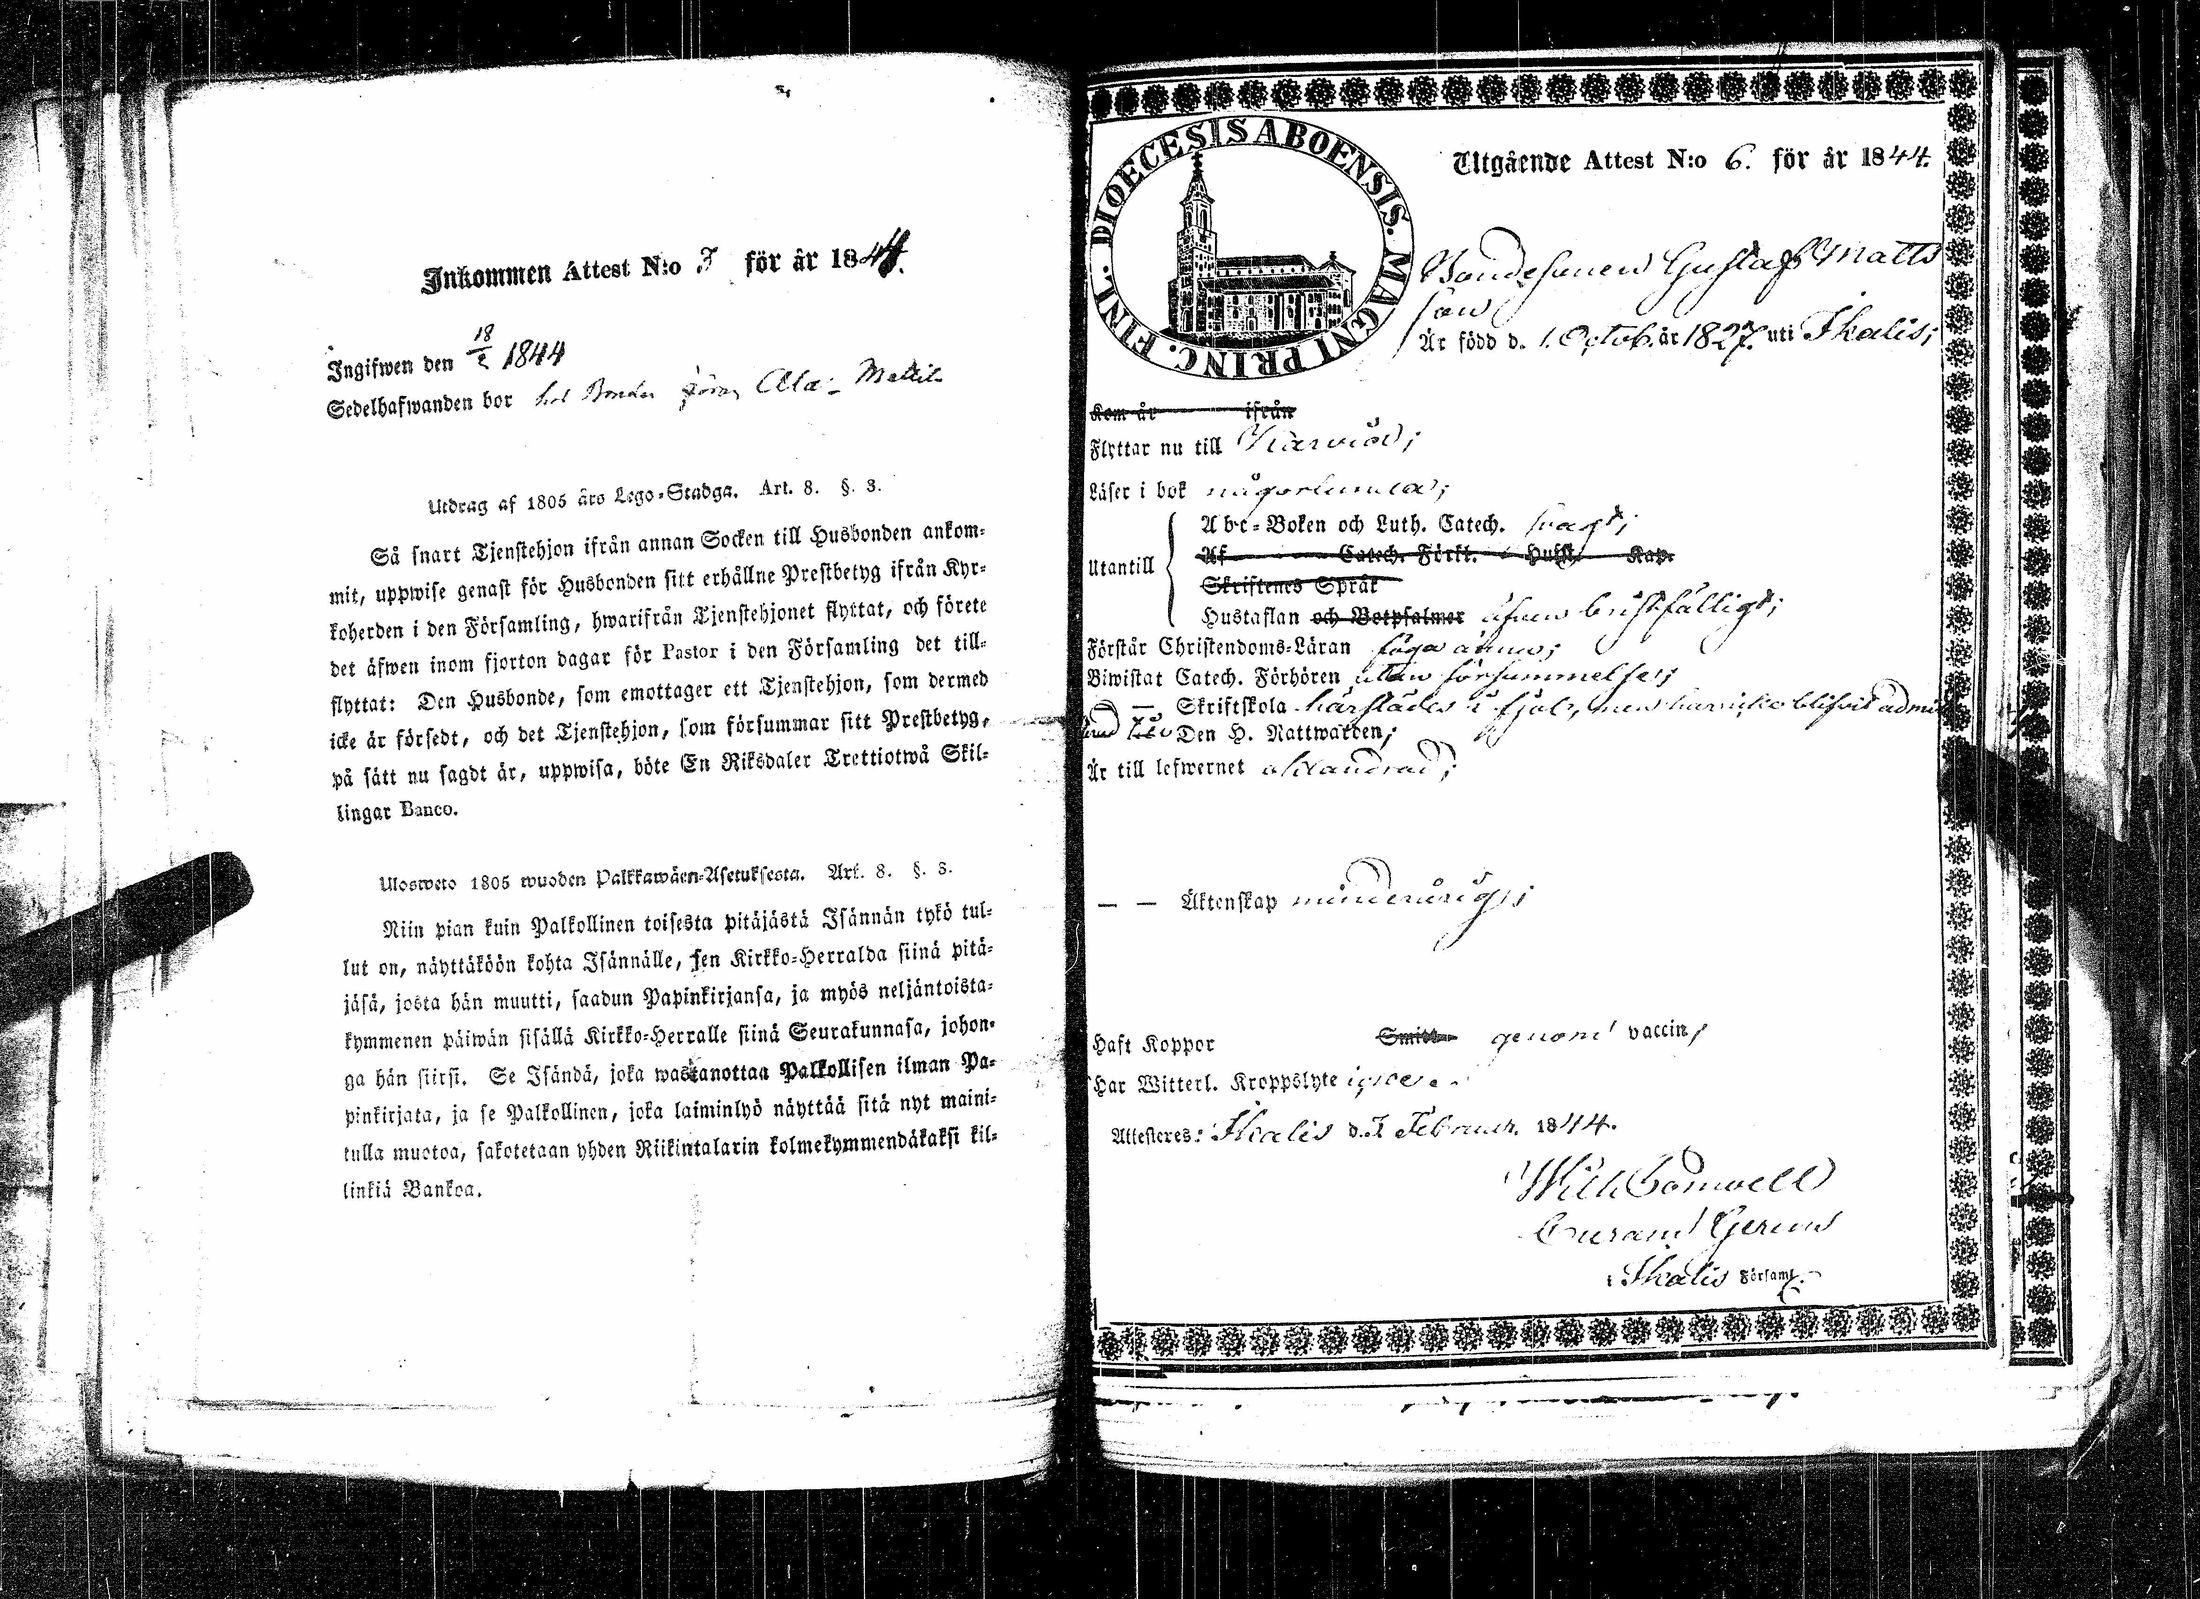 Inkommen Attest N:o 7 för år 1844.
Ingifwen den 18/2 1844
Sedelhafwanden bor hos Bonden Ala-
Utdrag af 1805 års Lego-Stadga. Art. 8. §. 3.
Så snart Tjenstehjon ifrån annan Socken till Husbonden ankom-
mit, uppwise genast för Husbonden sitt erhållne Prestbetyg ifrån Kyr-
koherden i den Församling, hwarifrån Tjenstehjonet flyttat, och förete
det äfwen inom fjorton dagar för Pastor i den Församling det till-
flyttat: Den Husbonde, som emottager ett Tjenstehjon, som dermed
icke är försedt, och det Tjenstehjon, som försummar sitt Prestbetyg,
på sätt nu sagdt är, uppwisa, böte En Riksdaler Trettiotwå Skil-
lingar Banco.
Ulosweto 1805 wuoden Palkkawäen-Asetuksesta. Art. 8. §. 3.
Niin pian kuin Palkollinen toisesta pitäjästä Isännän tykö tul-
lut on, näyttäköön kohta Isännälle, sen Kirkko-Herralda siinä pitä-
jäsä, josta hän muutti, saadun Papinkirjansa, ja myös neljäntoista-
kymmenen päiwän sisällä Kirkko-Herralle siinä Seurakunnasa, johon-
ga hän siirsi. Se Isändä, joka wastanottaa Palkollisen ilman Pa-
pinkirjata, ja se Palkollinen, joka laiminlyö näyttää sitä nyt maini-
tulla muotoa, sakotetaan yhden Riikintalarin kolmekymmendäkaksi kil-
linkiä Bankoa.
DIOECESIS ABOENSIS. MAGNI PRINC. FINL.
Utgående Attest N:o 6. för år 1844.
Bondesonen Gustaf Matts
son
Är född d. 1. Octob. år 1827. uti Ikalis;
Kom år ifrån
Flyttar nu till Karvia;
Läser i bok någorlunda;
Utantill
Abc-Boken och Luth. Catech. svagt;
Af Catech. Förkl. Hufst. Kap.
Skriftenes Språk
Hustaflan och Botpsalmer äfven bristfälligt;
Förstår Christendoms-Läran föga ännu;
Biwistat Catech. Förhören utan försummelse;
— Skriftskola härstädes i fjol, men har icke blifvit admit
terad till Den H. Nattwarden;
Är till lefwernet oklandrad;
— — Äktenskap minderårig;
Haft Koppor Smitt genom vaccin;
Har Witterl. Kroppslyte
Attesteres: Ikalis d. 7 Februar. 1844.
Wilh.
Curam Gerens
i Ikalis Församl.